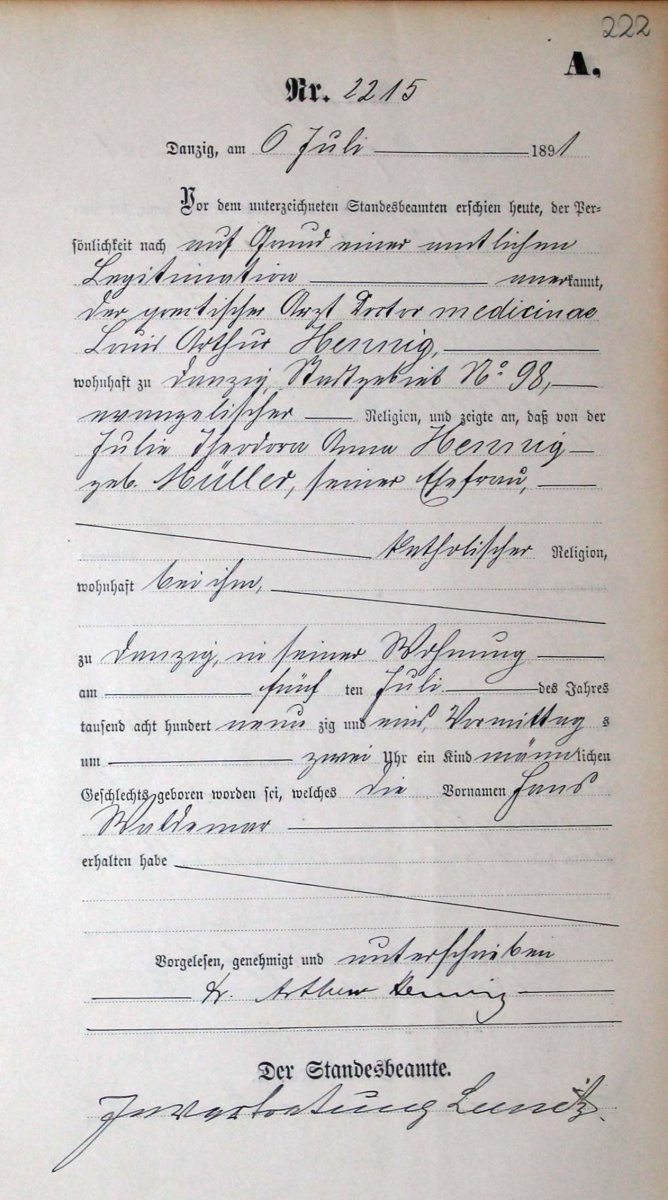 222
A.
Nr. 2215
Danzig, am 6 Juli 1891
Vor dem unterzeichneten Standesbeamten erschien heute, der Per=
sönlichkeit nach auf Grund einer amtlichen
Legitimation anerkannt,
der practischer Arzt Doctor medicinae
Louis Arthur Hennig,
wohnhaft zu Danzig, Stadtgebiet No 98,
evangelischer Religion, und zeigte an, daß von der
Julie Theodora Anna Hennig
geb. Müller, seiner Ehefrau,
katholischer Religion,
wohnhaft bei ihm,
zu Danzig, in seiner Wohnung
am fünf ten Juli des Jahres
tausend acht hundert neun zig und eins, Vormittag s
um zwei Uhr ein Kind männlichen
Geschlechts geboren worden sei, welches die Vornamen Hans
Waldemar
erhalten habe
Vorgelesen, genehmigt und unterschrieben
Dr. Arthur Hennig
Der Standesbeamte.
In Vertretung